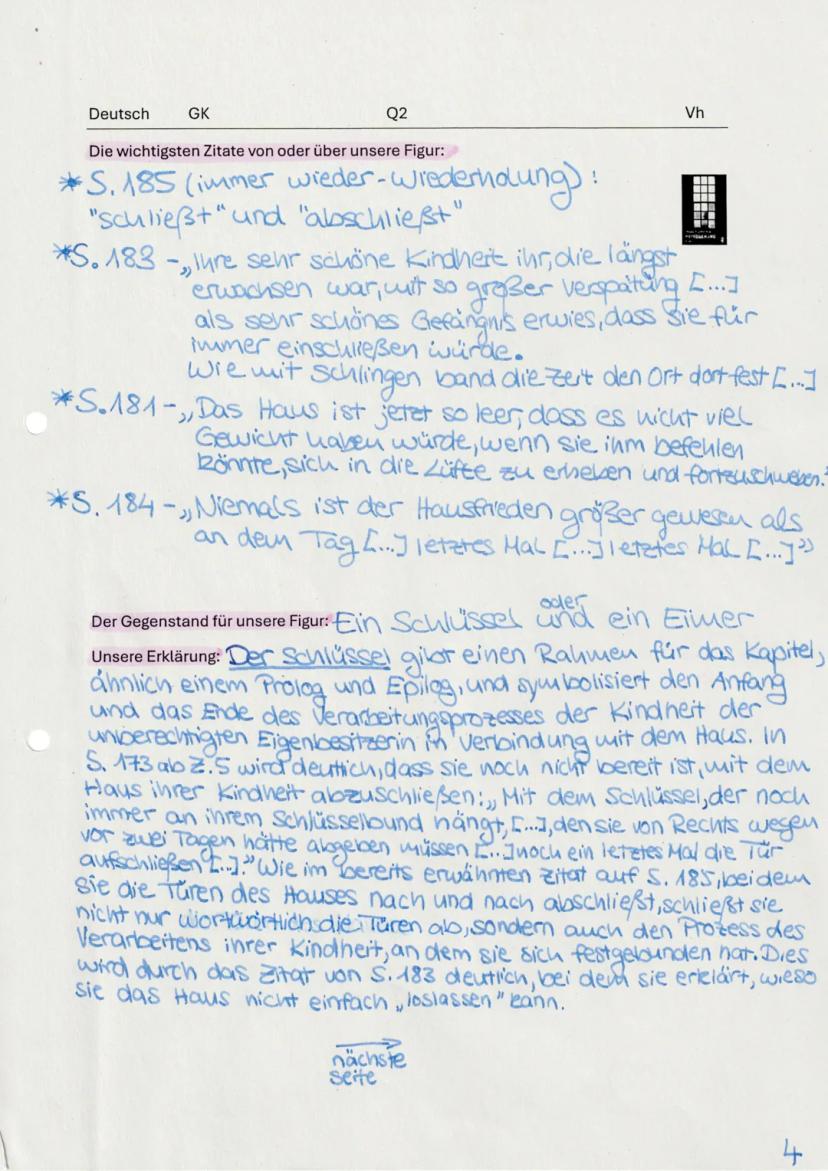 Deutsch GK Q2 Vh
Die wichtigsten Zitate von oder über unsere Figur:
* S. 185 (immer wieder-Wiederholung):
"schließt" und "abschließt"
* S. 183 - „Ihre sehr schöne Kindheit ihr, die längst
erwachsen war, mit so großer Verspätung [...]
als sehr schönes Gefängnis erwies, dass sie für
immer einschließen würde.
Wie mit Schlingen band die Zeit den Ort dort fest [...]
* S. 181 - „Das Haus ist jetzt so leer, dass es nicht viel
Gewicht haben würde, wenn sie ihm befehlen
könnte, sich in die Lüfte zu erheben und fortzuschweben."
* S. 184 - „Niemals ist der Hausfrieden größer gewesen als
an dem Tag [...] letztes Mal [...] letztes Mal [...]"
Der Gegenstand für unsere Figur: Ein Schlüssel und oder ein Eimer
Unsere Erklärung: Der Schlüssel gibt einen Rahmen für das Kapitel,
ähnlich einem Prolog und Epilog, und symbolisiert den Anfang
und das Ende des Verarbeitungsprozesses der Kindheit der
unberechtigten Eigenbesitzerin in Verbindung mit dem Haus. In
S. 173 ab Z. 5 wird deutlich, dass sie noch nicht bereit ist, mit dem
Haus ihrer Kindheit abzuschließen: „Mit dem Schlüssel, der noch
immer an ihrem Schlüsselbund hängt, [...], den sie von Rechts wegen
vor zwei Tagen hätte abgeben müssen [...] noch ein letztes Mal die Tür
aufschließen [...]." Wie im bereits erwähnten Zitat auf S. 185, bei dem
sie die Türen des Hauses nach und nach abschließt, schließt sie
nicht nur wortwörtlich die Türen ab, sondern auch den Prozess des
Verarbeitens ihrer Kindheit, an dem sie sich festgebunden hat. Dies
wird durch das Zitat von S. 183 deutlich, bei dem sie erklärt, wieso
sie das Haus nicht einfach „loslassen" kann.
nächste
seite
4